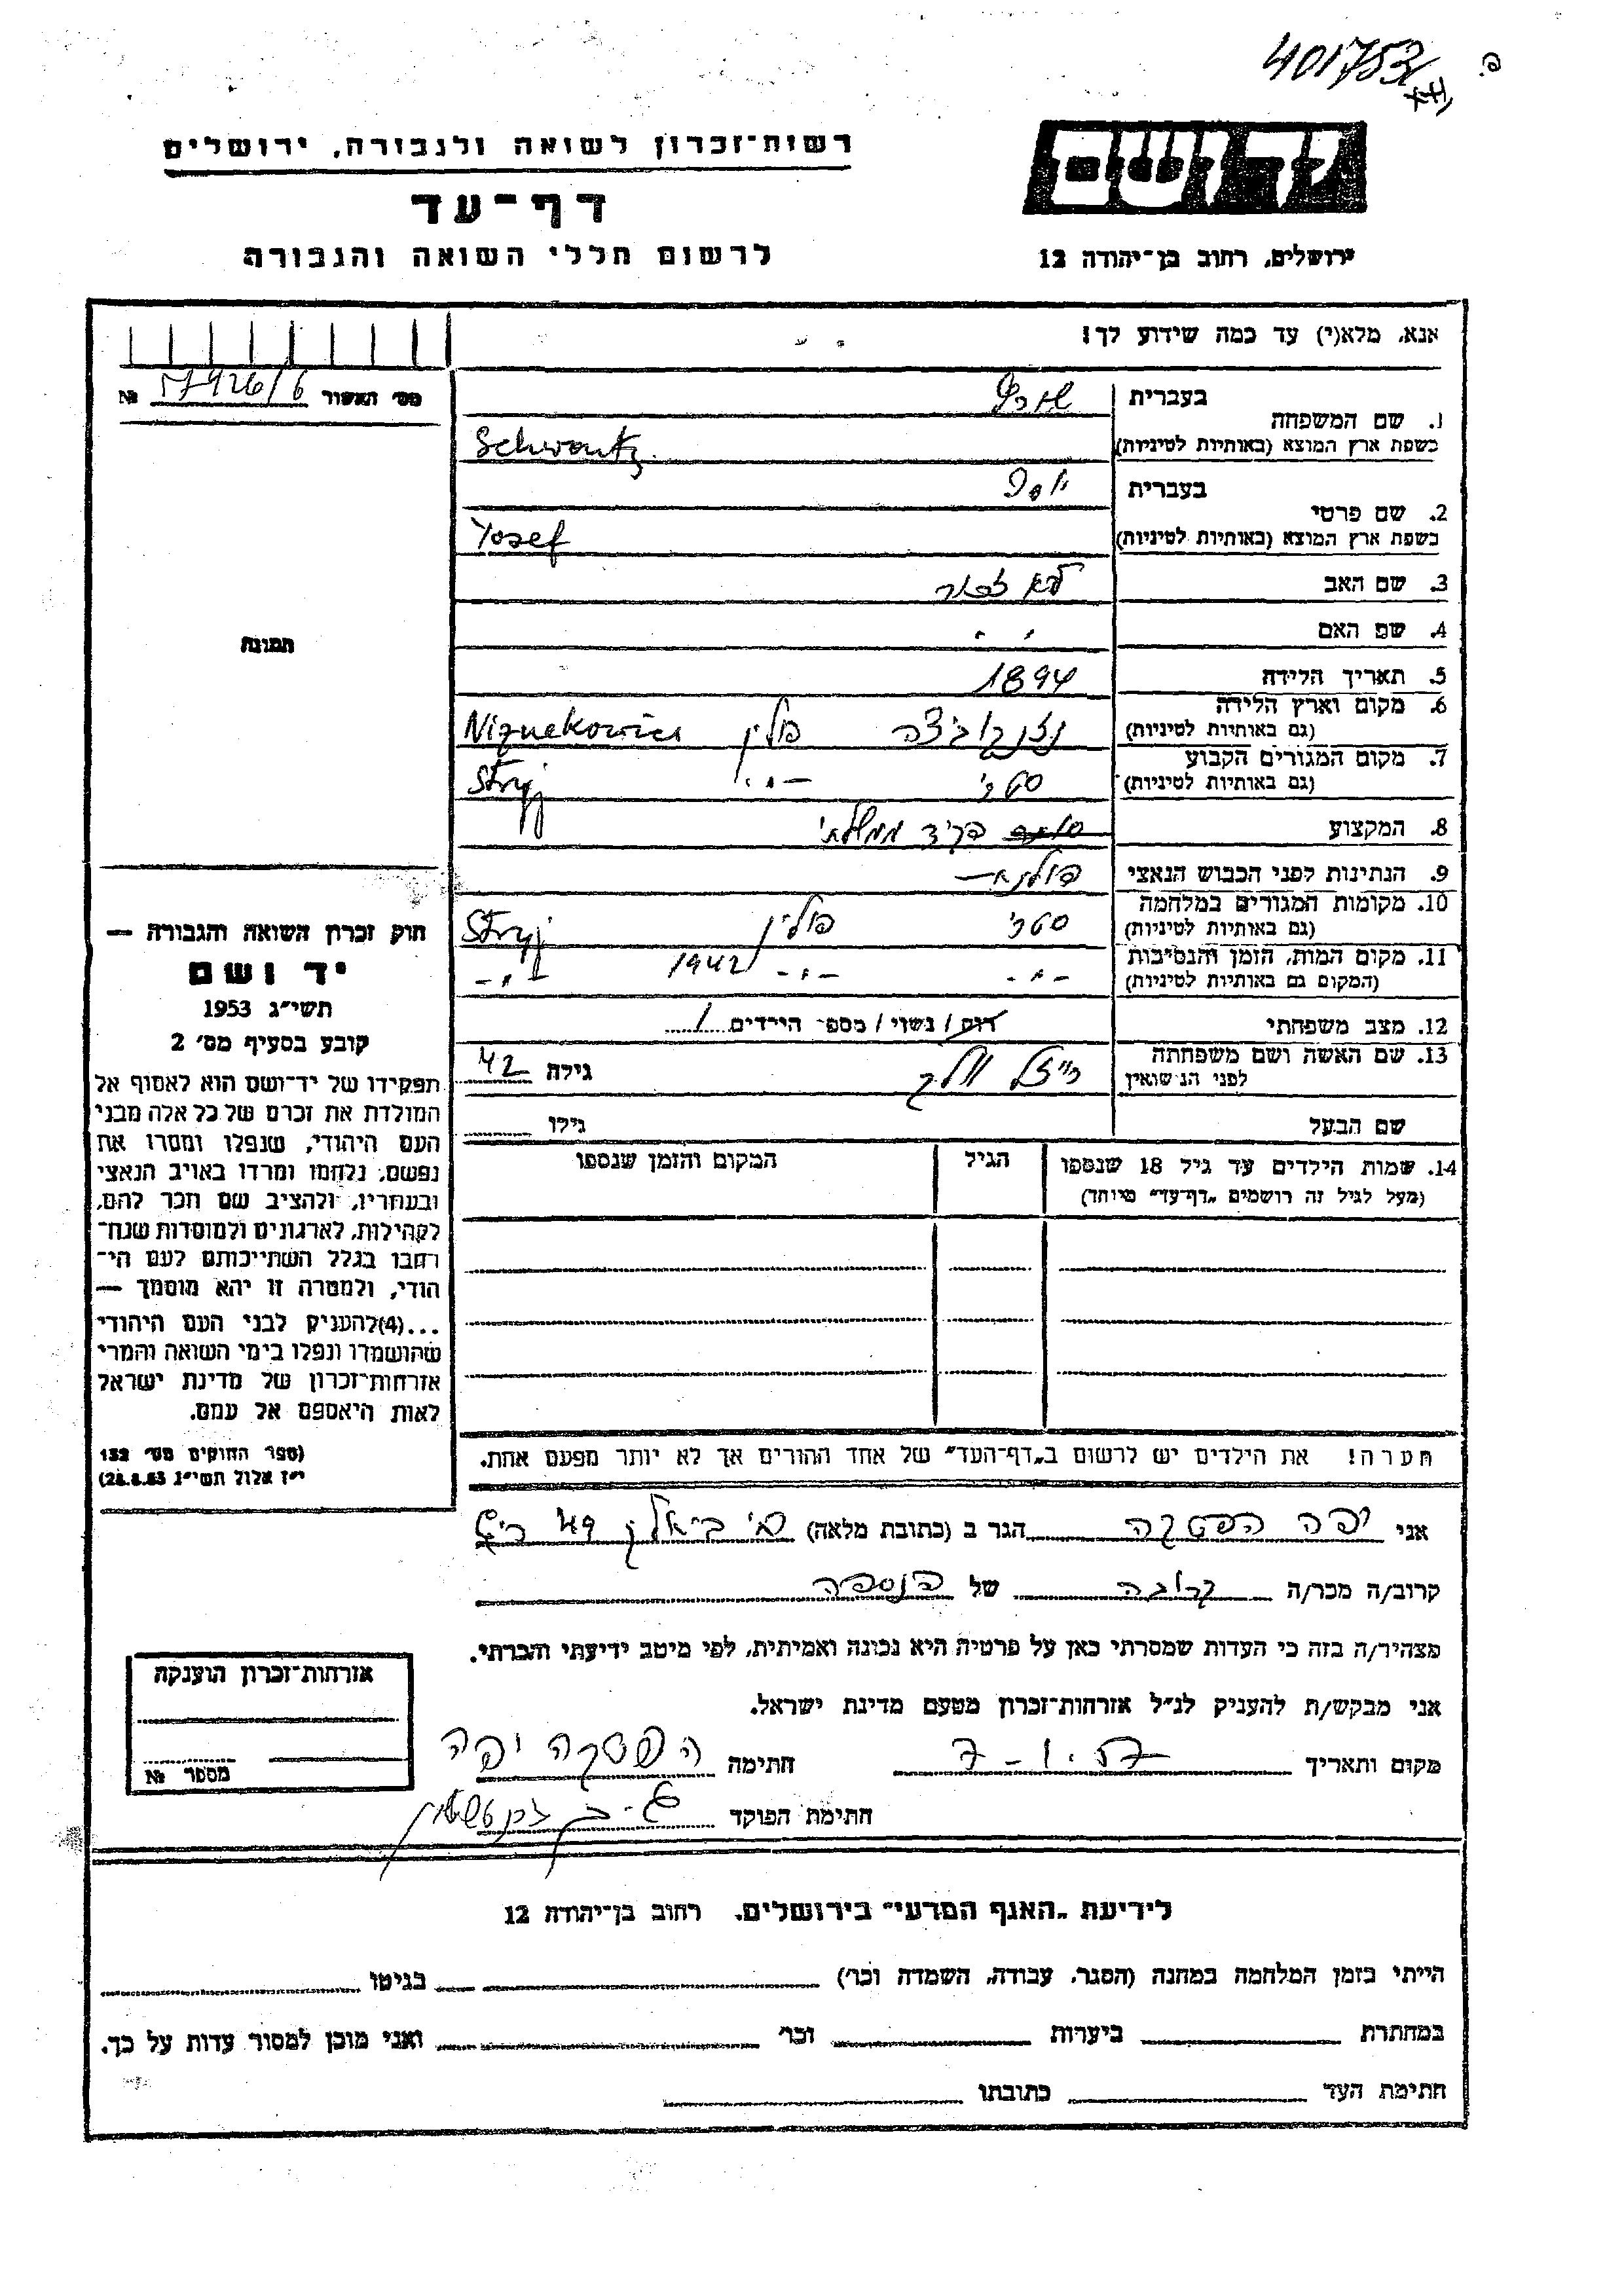 401753
רשות־זכרון לשואה ולגבורה, ירושלים
דף־עד
לרשום חללי השואה והגבורה
יד ושם
ירושלים, רחוב בן־יהודה 12
אנא, מלא(י) עד כמה שידוע לך!
מס׳ האשור № 57926/6
1. שם המשפחה
בעברית שורץ
בשפת ארץ המוצא (באותיות לטיניות) Schwartz
2. שם פרטי
בעברית יוסף
בשפת ארץ המוצא (באותיות לטיניות) Yosef
3. שם האב לא זכור
4. שם האם
5. תאריך הלידה 1894
6. מקום וארץ הלידה
(גם באותיות לטיניות) פולין
7. מקום המגורים הקבוע
(גם באותיות לטיניות) סטרי -״- Stryj
8. המקצוע פקיד ממשלתי
9. הנתינות לפני הכבוש הנאצי פולנית
10. מקומות המגורים במלחמה
(גם באותיות לטיניות) סטרי פולין Stryj
11. מקום המות, הזמן והנסיבות
(המקום גם באותיות לטיניות) -״- -״- 1942 -״-
12. מצב משפחתי רווק/נשוי/מספר הילדים 1
13. שם האשה ושם משפחתה
לפני הנשואין גילה 42
שם הבעל גילו
14. שמות הילדים עד גיל 18 שנספו
(מעל לגיל זה רושמים „דף־עד״ מיוחד)
הגיל
המקום והזמן שנספו
תמונה
חוק זכרון השואה והגבורה —
יד ושם
תשי״ג 1953
קובע בסעיף מס׳ 2
תפקידו של יד־ושם הוא לאסוף אל
המולדת את זכרם של כל אלה מבני
העם היהודי, שנפלו ומסרו את
נפשם, נלחמו ומרדו באויב הנאצי
ובעוזריו, ולהציב שם וזכר להם,
לקהילות, לארגונים ולמוסדות שנח־
רבו בגלל השתייכותם לעם הי־
הודי, ולמטרה זו יהא מוסמך —
...(4)להעניק לבני העם היהודי
שהושמדו ונפלו בימי השואה והמרי
אזרחות־זכרון של מדינת ישראל
לאות היאספם אל עמם.
(ספר החוקים מס׳ 132
י״ז אלול תשי״ג 28.8.53)
הערה! את הילדים יש לרשום ב„דף־העד״ של אחד ההורים אך לא יותר מפעם אחת.
אני יפה הפטקה הגר ב (כתובת מלאה)
קרוב/ה מכר/ה קרובה של הנספה
מצהיר/ה בזה כי העדות שמסרתי כאן על פרטיה היא נכונה ואמיתית, לפי מיטב ידיעתי והכרתי.
אני מבקש/ת להעניק לנ״ל אזרחות־זכרון מטעם מדינת ישראל.
מקום ותאריך 7-1.57 חתימה הפטקה יפה
חתימת הפוקד
אזרחות־זכרון הוענקה
מספר №
לידיעת „האגף המדעי״ בירושלים. רחוב בן־יהודה 12
הייתי בזמן המלחמה במחנה (הסגר, עבודה, השמדה וכו׳) בגיטו
במחתרת ביערות וכו׳ ואני מוכן למסור עדות על כך.
חתימת העד כתובתו